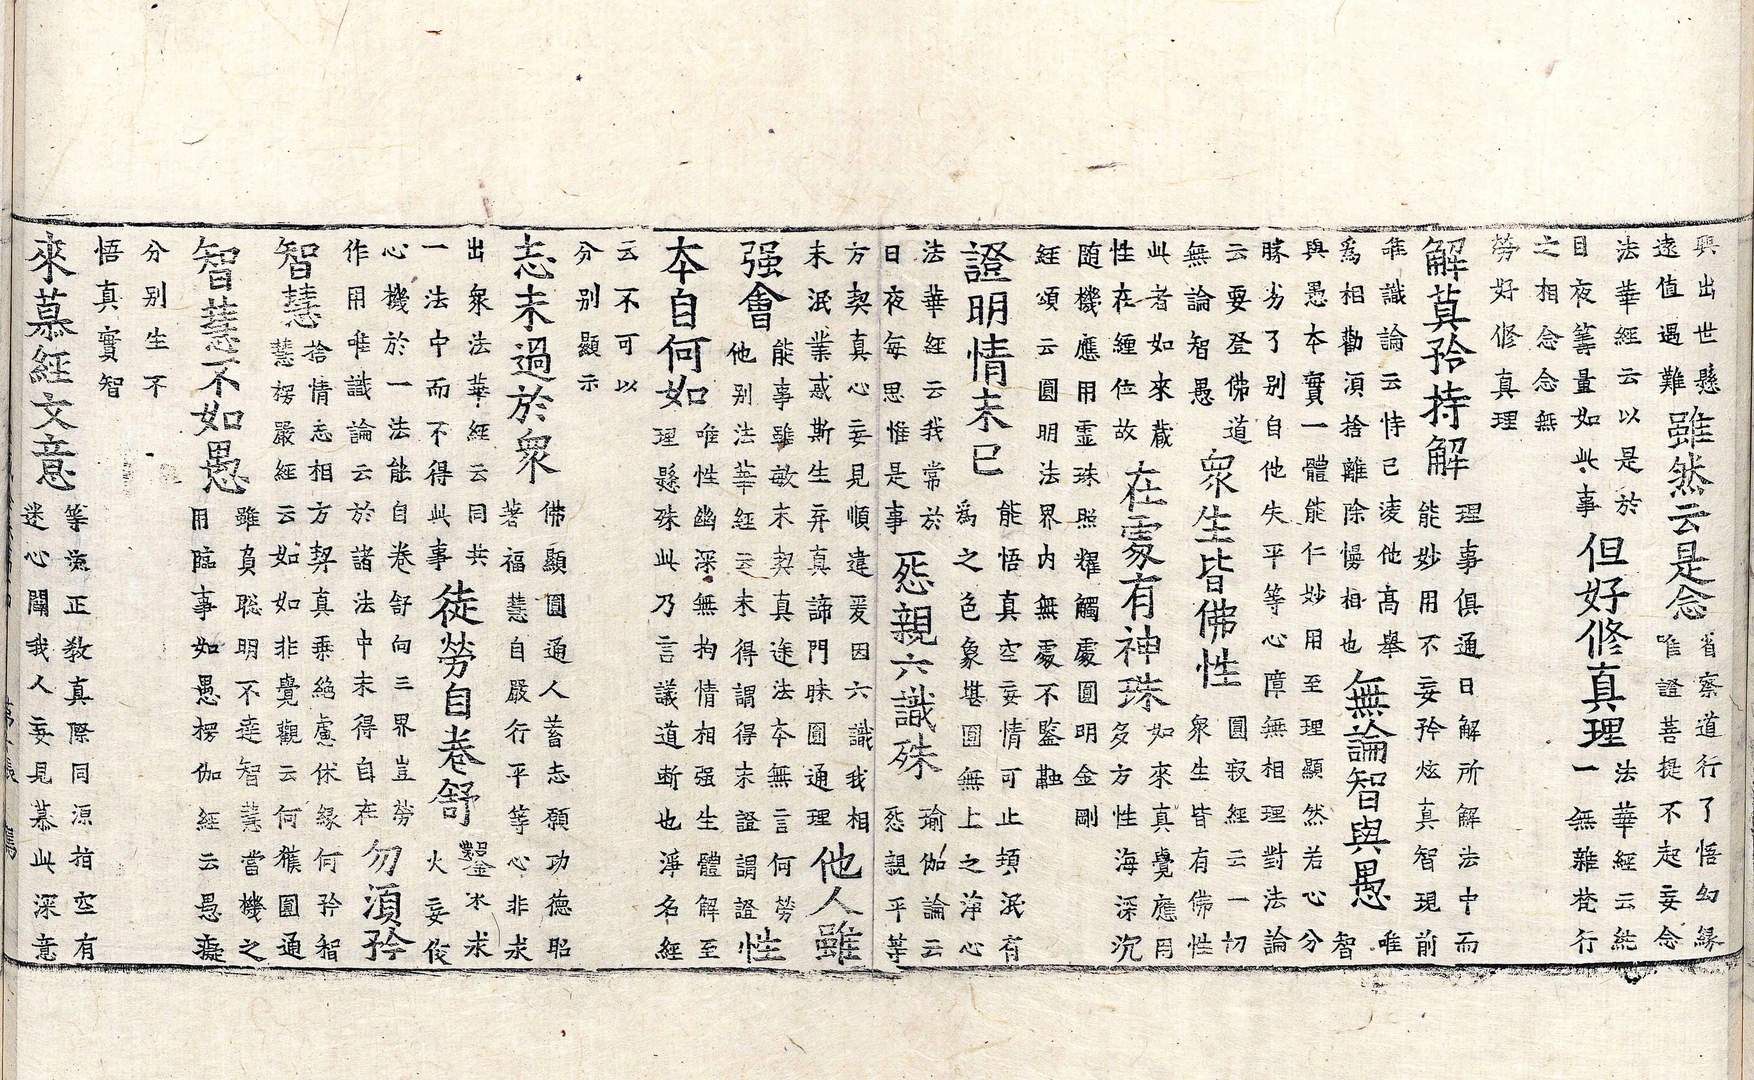 興出世懸
遠值遇難
雖然云是念
省察道行了悟幻緣
唯證菩提不起妄念
法華經云以是於
日夜籌量如此事
但好修真理
法華經云純
一無雜梵行
之相念念無
勞好修真理
解莫矜持解
理事俱通日解所解法中而
能妙用不妄矜炫真智現前
唯識論云恃己凌他高舉
爲相勸須捨離除慢相也
無論智與愚
唯
智
與愚本實一體能仁妙用至理顯然若心分
勝劣了別自他失平等心障無相理對法論
云要登佛道
無論智愚
衆生皆佛性
圓寂經云一切
衆生皆有佛性
此者如來蔵
性在纏位故
在處有神珠
如來真覺應用
多方性海深沉
随機應用霊珠照耀觸處圓明金剛
經頌云圓明法界内無處不鑒
證明情未已
能悟真空妄情可止頓泯有
爲之色象堪圓無上之淨心
法華經云我常於
日夜每思惟是事
怨親六識殊
瑜伽論云
怨親平等
方契真心妄見順違爰因六識我相
未泯業惑斯生弃真諦門昧圓通理
他人雖
强會
能事雖敏未契真途法本無言何勞
他別法華經云未得謂得未證謂證
性
本自何如
唯性幽深無拘情相强生體解至
理懸殊此乃言議道斷也淨名經
云不可以
分別顯示
志未過於衆
佛顯圓通人蓄志願功德昭
著福慧自嚴行平等心非求
出衆法華經云同共
一法中而不得此事
徒勞自卷舒
鑿氷求
火妄伇
心機於一法能自卷舒向三界豈勞
作用唯識論云於諸法中未得自在
勿須矜
智慧
捨情忘相方契真乗絶慮休緣何矜智
慧楞嚴經云如如非覺觀云何獲圓通
智慧不如愚
雖負聡明不達智慧當機之
用臨事如愚楞伽經云愚癡
分別生不
悟真實智
來慕經文意
等流正教真際同源指空有
迷心闡我人妄見慕此深意